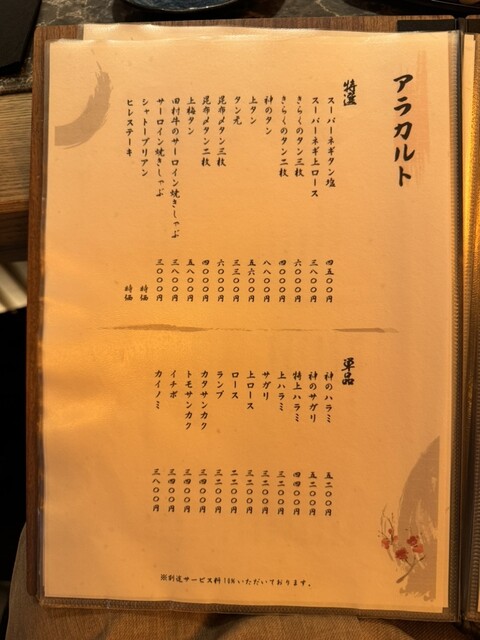 アラカルト
特選
スーパーネギタン塩 四五〇〇円
スーパーネギ上ロース 三八〇〇円
きらくのタン三枚 六〇〇〇円
きらくのタン二枚 四〇〇〇円
神のタン 八八〇〇円
上タン 五六〇〇円
タン元 三三〇〇円
昆布〆タン三枚 六〇〇〇円
昆布〆タン二枚 四〇〇〇円
上梅タン 五八〇〇円
田村牛のサーロイン焼きしゃぶ 三八〇〇円
サーロイン焼きしゃぶ 三〇〇〇円
シャトーブリアン 時価
ヒレステーキ 時価
単品
神のハラミ 五二〇〇円
神のサガリ 五二〇〇円
特上ハラミ 四四〇〇円
上ハラミ 三二〇〇円
サガリ 三二〇〇円
上ロース 三二〇〇円
ロース 二二〇〇円
ランプ 三二〇〇円
カタサンカク 三四〇〇円
トモサンカク 三四〇〇円
イチボ 三四〇〇円
カイノミ 三八〇〇円
※別途サービス料10%いただいております。